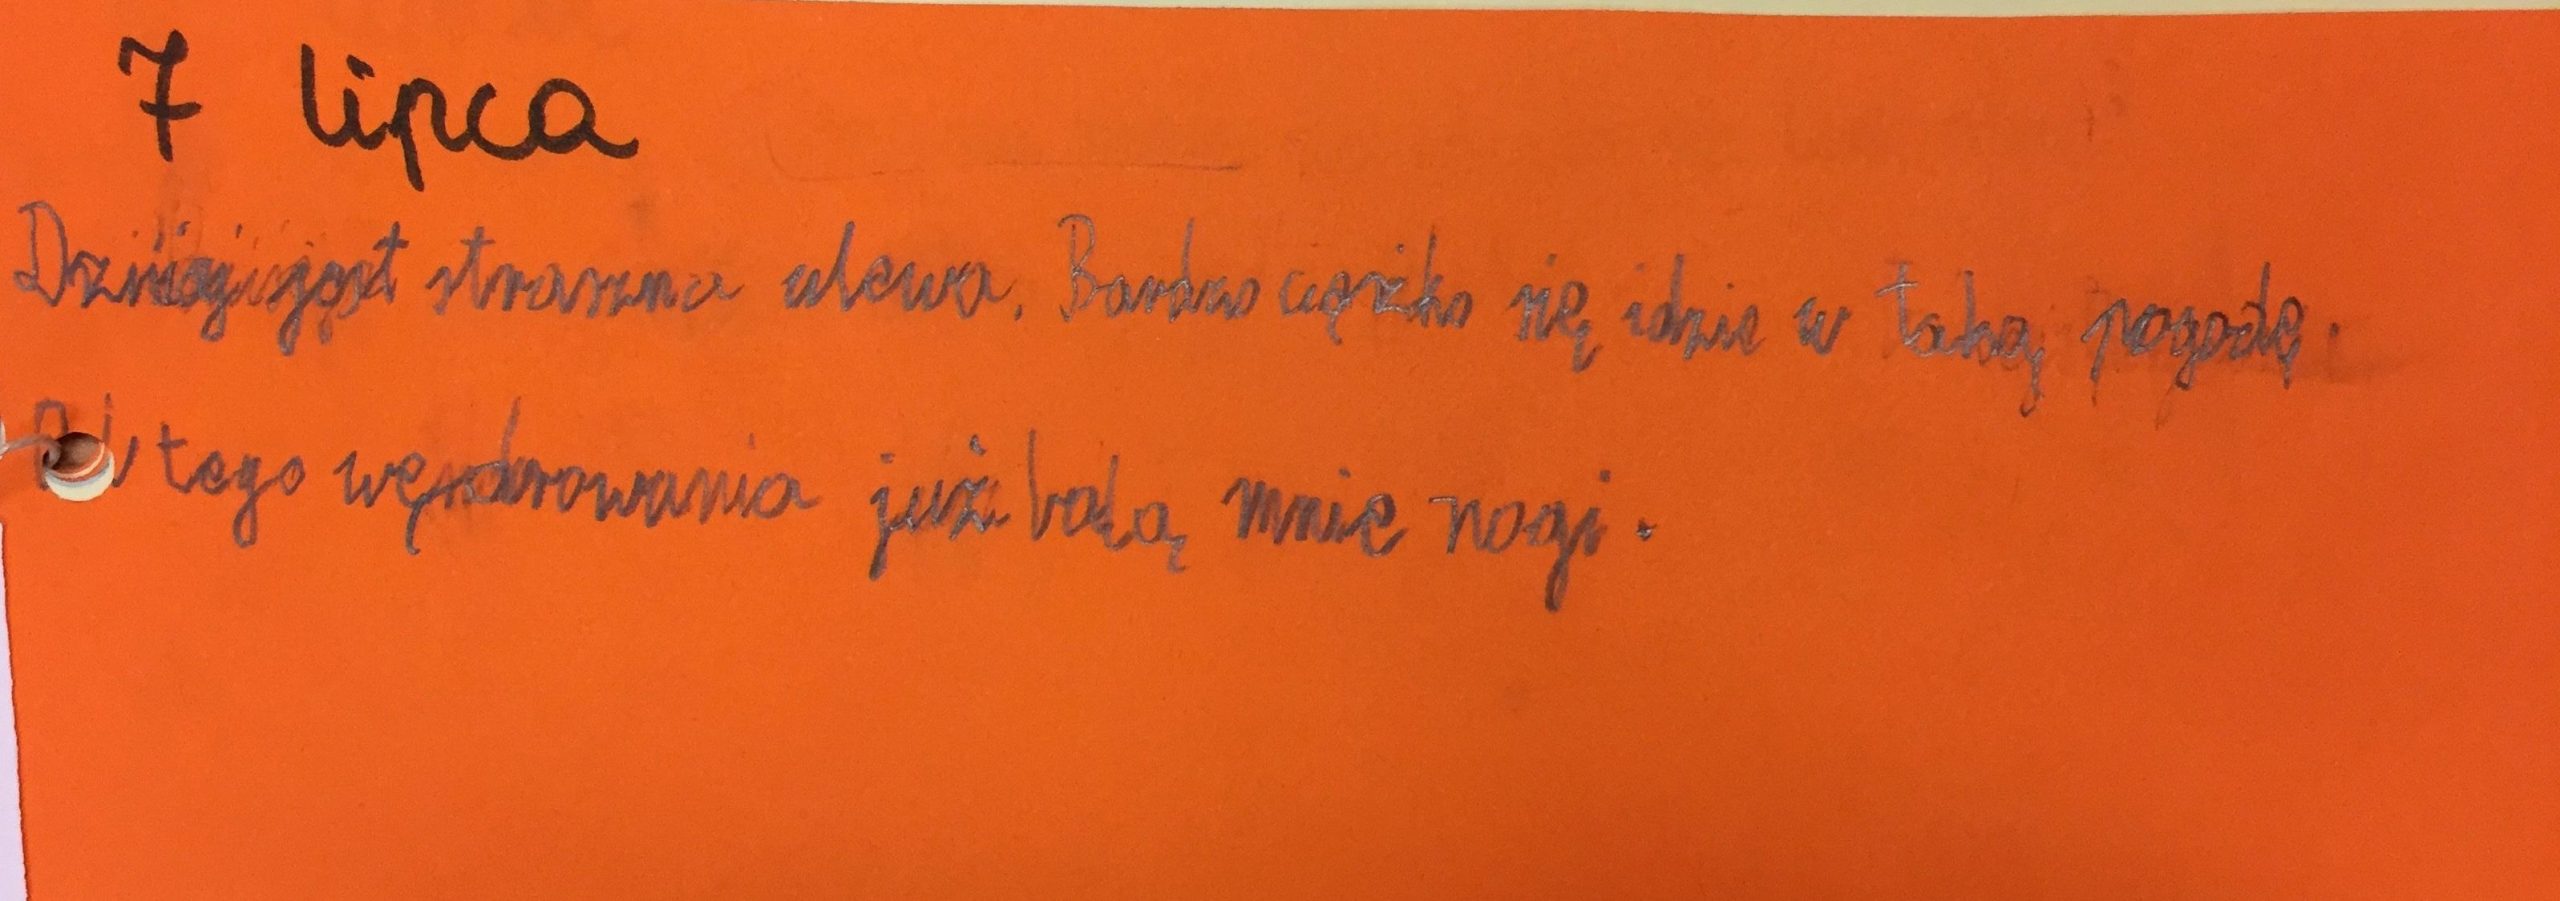 7 lipca
Dzisiaj jest straszna ulewa. Bardzo ciężko się idzie w taką pogodę.
tego wędrowania już bolą mnie nogi.